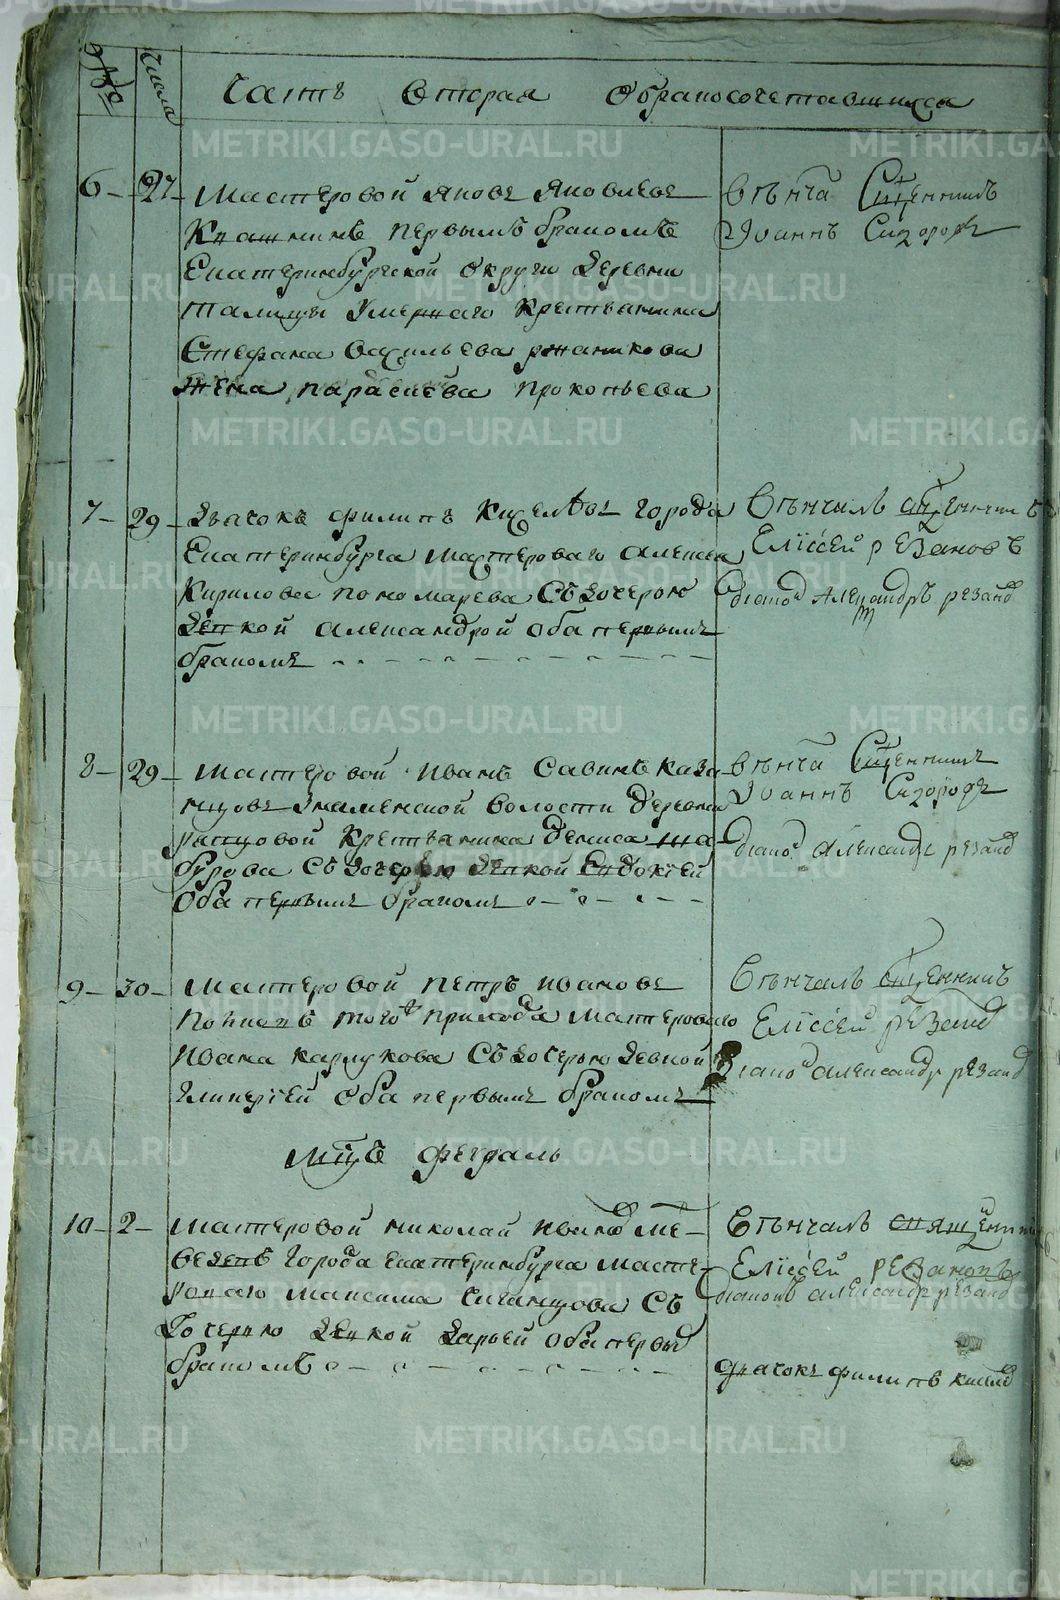 №
Числа
Часть Вторая Обракосочетавшихся
6 27 Мастеровой яковъ яковлевъ
Квашнинъ первымъ бракомъ
Екатеринбургской округи деревни
талицы умершаго крестьянина
Стефана Васильева
жена парасковья Прокопьева
Венча Сщенникъ
Иоаннъ Сидоровъ
7 29 Дьячокъ филипъ Киселевъ города
Екатеринбурга мастероваго алексея
Кирилова пономарева Съ дочерью
девкой александрой оба первымъ
бракомъ
Венчалъ сщенникъ
Елисей резановъ
диаконъ Александръ резанов
8 29 Мастеровой иванъ Савинъ каза
нцовъ Знаменской волости деревни
крестьянина дениса ша
бурова Съ дочерью девкой Евдокией
Оба первымъ бракомъ
венча Сщенникъ
Иоаннъ Сидоровъ
диако александръ резанов
9 30 Мастеровой петръ ивановъ
того прихода мастероваго
ивана карлукова Съ дочерью девкой
Гликерией Оба первымъ бракомъ
Венчалъ сщенникъ
Елисей резанов
диако александръ резанов
Мцъ февраль
10 2 Мастеровой николай иванов ме
города екатеринбурга масте
роваго максима Съ
дочерью девкой дарьей оба первы
бракомъ
Венчалъ священникъ
Елисей резановъ
диаконъ александръ резанов
дьячокъ филипъ кисел
METRIKI.GASO-URAL.RU